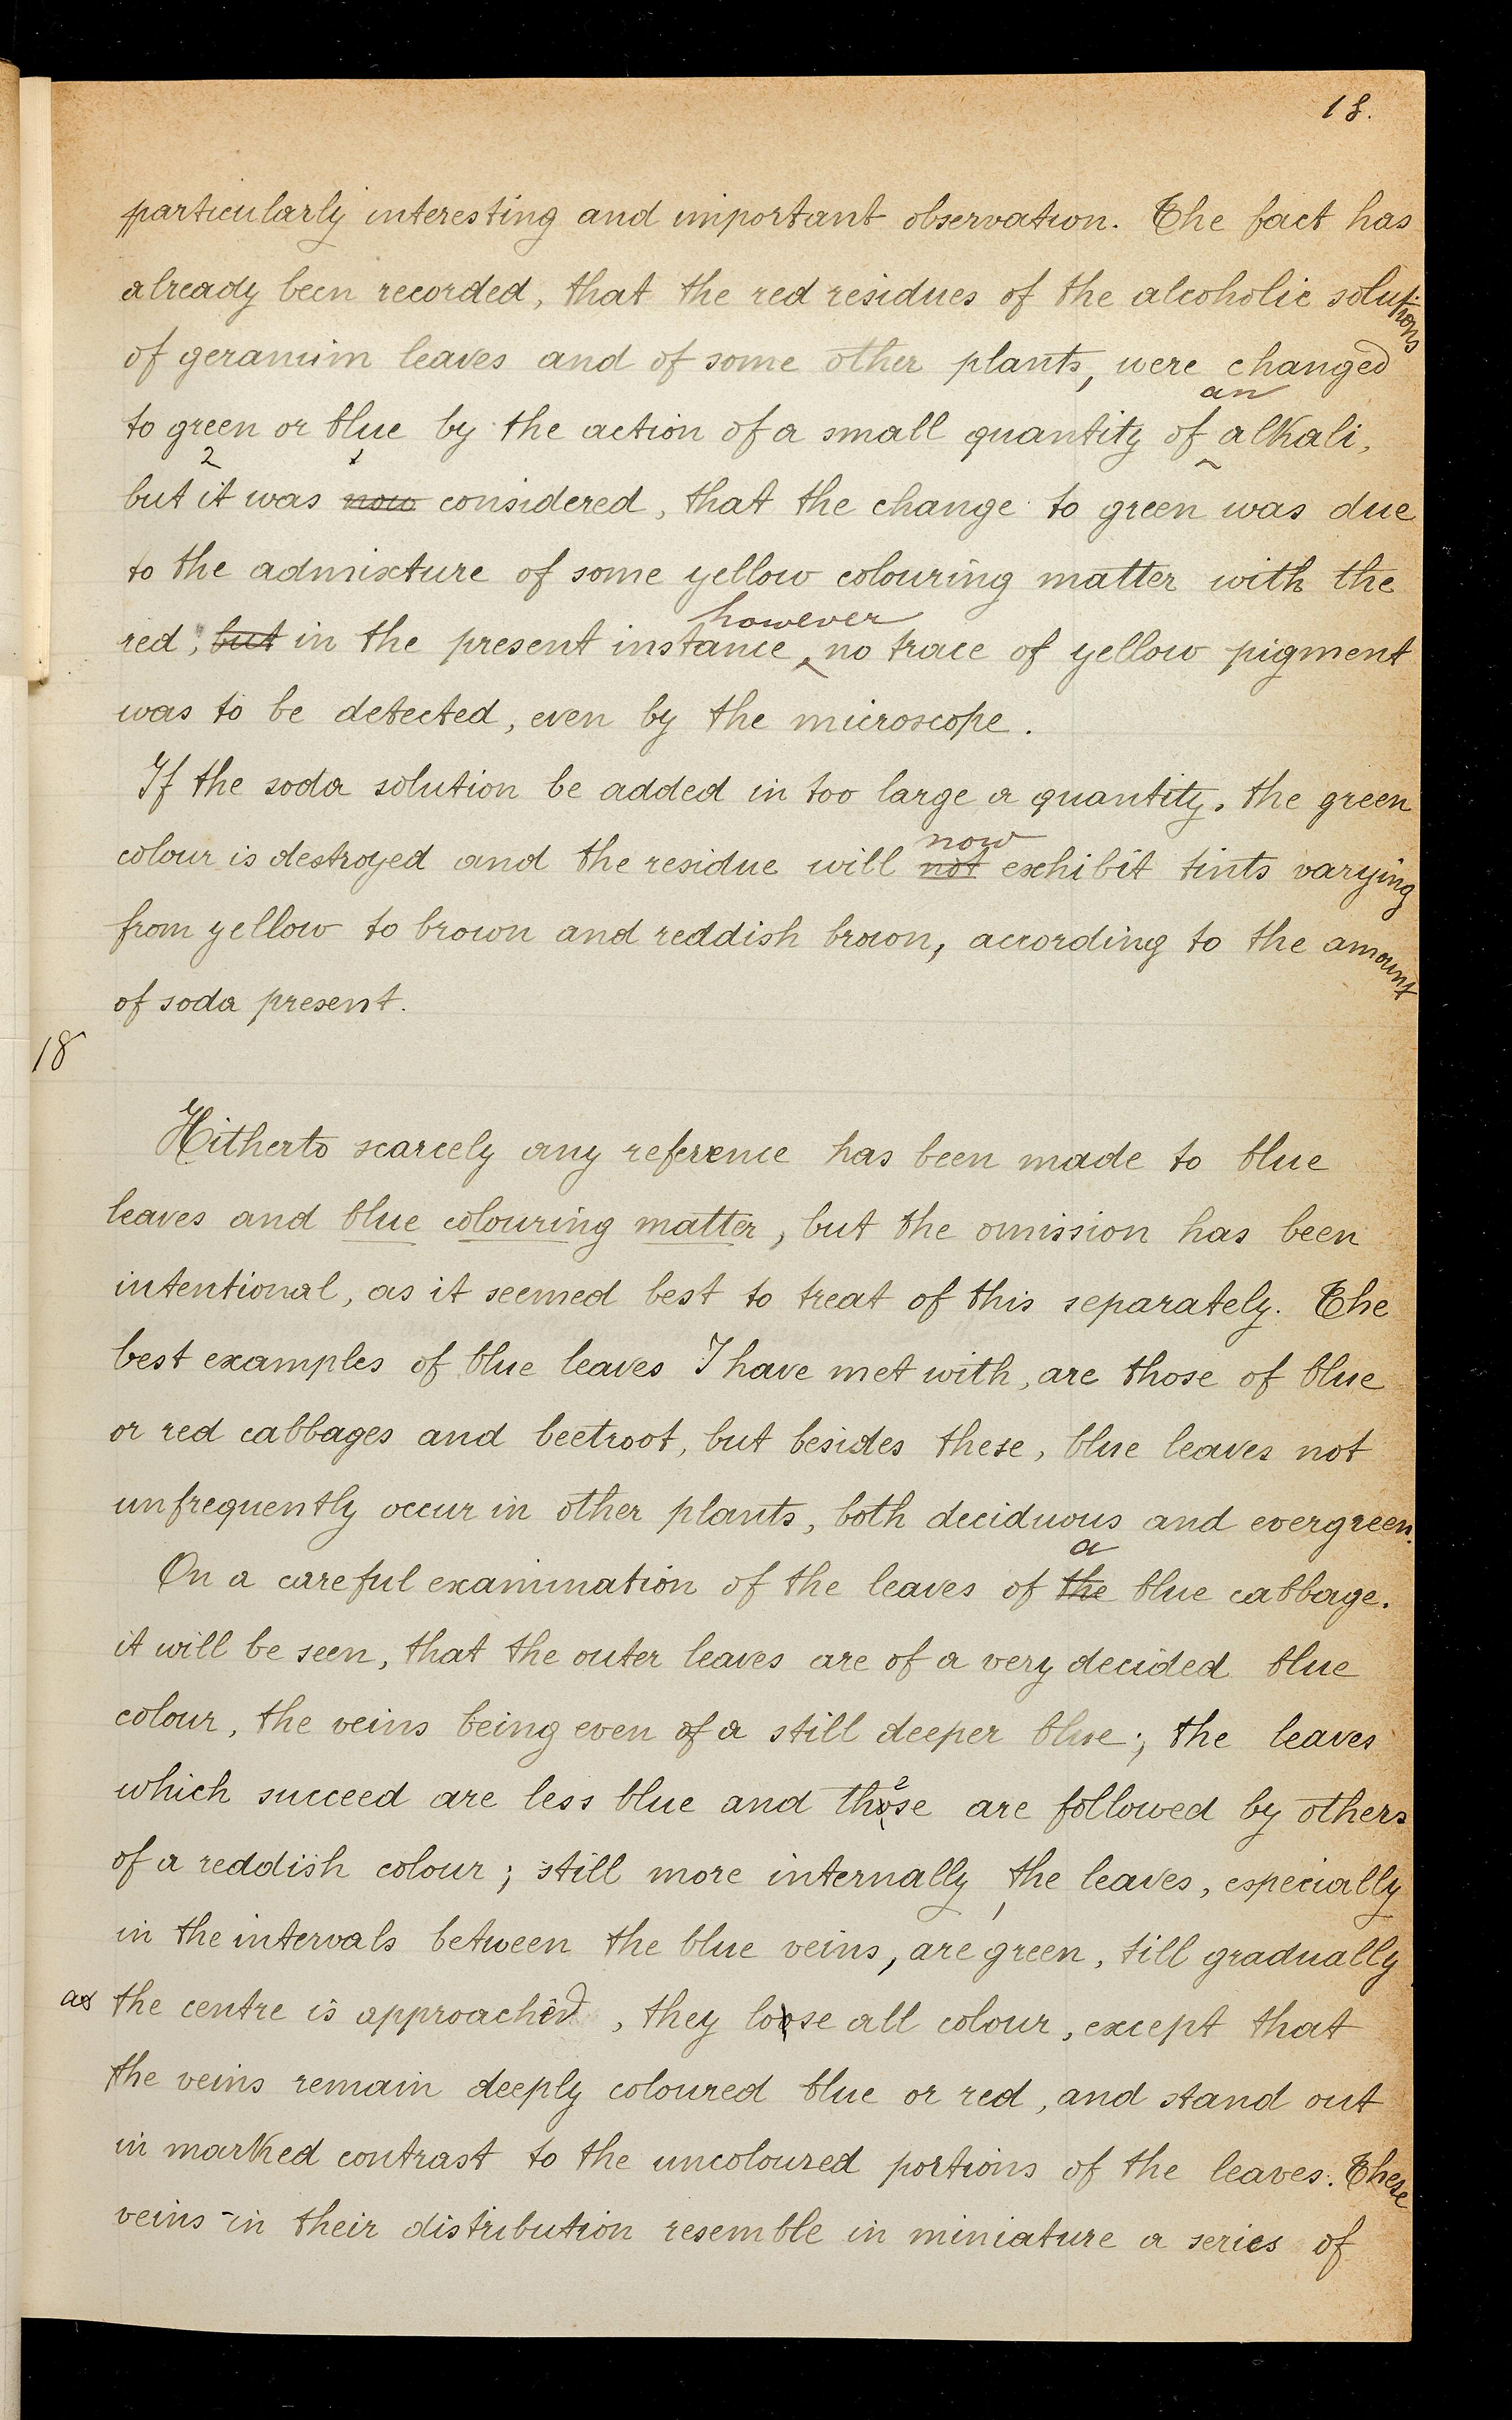 18.
particularly interesting and important observation. The fact has
already been recorded, that the red residues of the alcoholic solutions
of geranium leaves and of some other plants, were changed
an
to green or blue by the action of a small quantity of alkali,
2 1
but it was now considered, that the change to green was due
to the admixture of some yellow colouring matter with the
however
red; but in the present instance, no trace of yellow pigment
was to be detected, even by the microscope.
If the soda solution be added in too large a quantity, the green
now
colour is destroyed and the residue will not exhibit tints varying
from yellow to brown and reddish brown, according to the amount
of soda present.
18
Hitherto scarcely any reference has been made to blue
leaves and blue colouring matter, but the omission has been
intentional, as it seemed best to treat of this separately. The
best examples of blue leaves I have met with, are those of blue
or red cabbages and beetroot, but besides these, blue leaves not
unfrequently occur in other plants, both deciduous and evergreen.
a
On a careful examination of the leaves of the blue cabbage.
it will be seen, that the outer leaves are of a very decided blue
colour, the veins being even of a still deeper blue; the leaves
which succeed are less blue and these are followed by others
of a reddish colour; still more internally, the leaves, especially
in the intervals between the blue veins, are green, till gradually
as the centre is approached, they lose all colour, except that
the veins remain deeply coloured blue or red, and stand out
in marked contrast to the uncoloured portions of the leaves. These
veins in their distribution resemble in miniature a series of